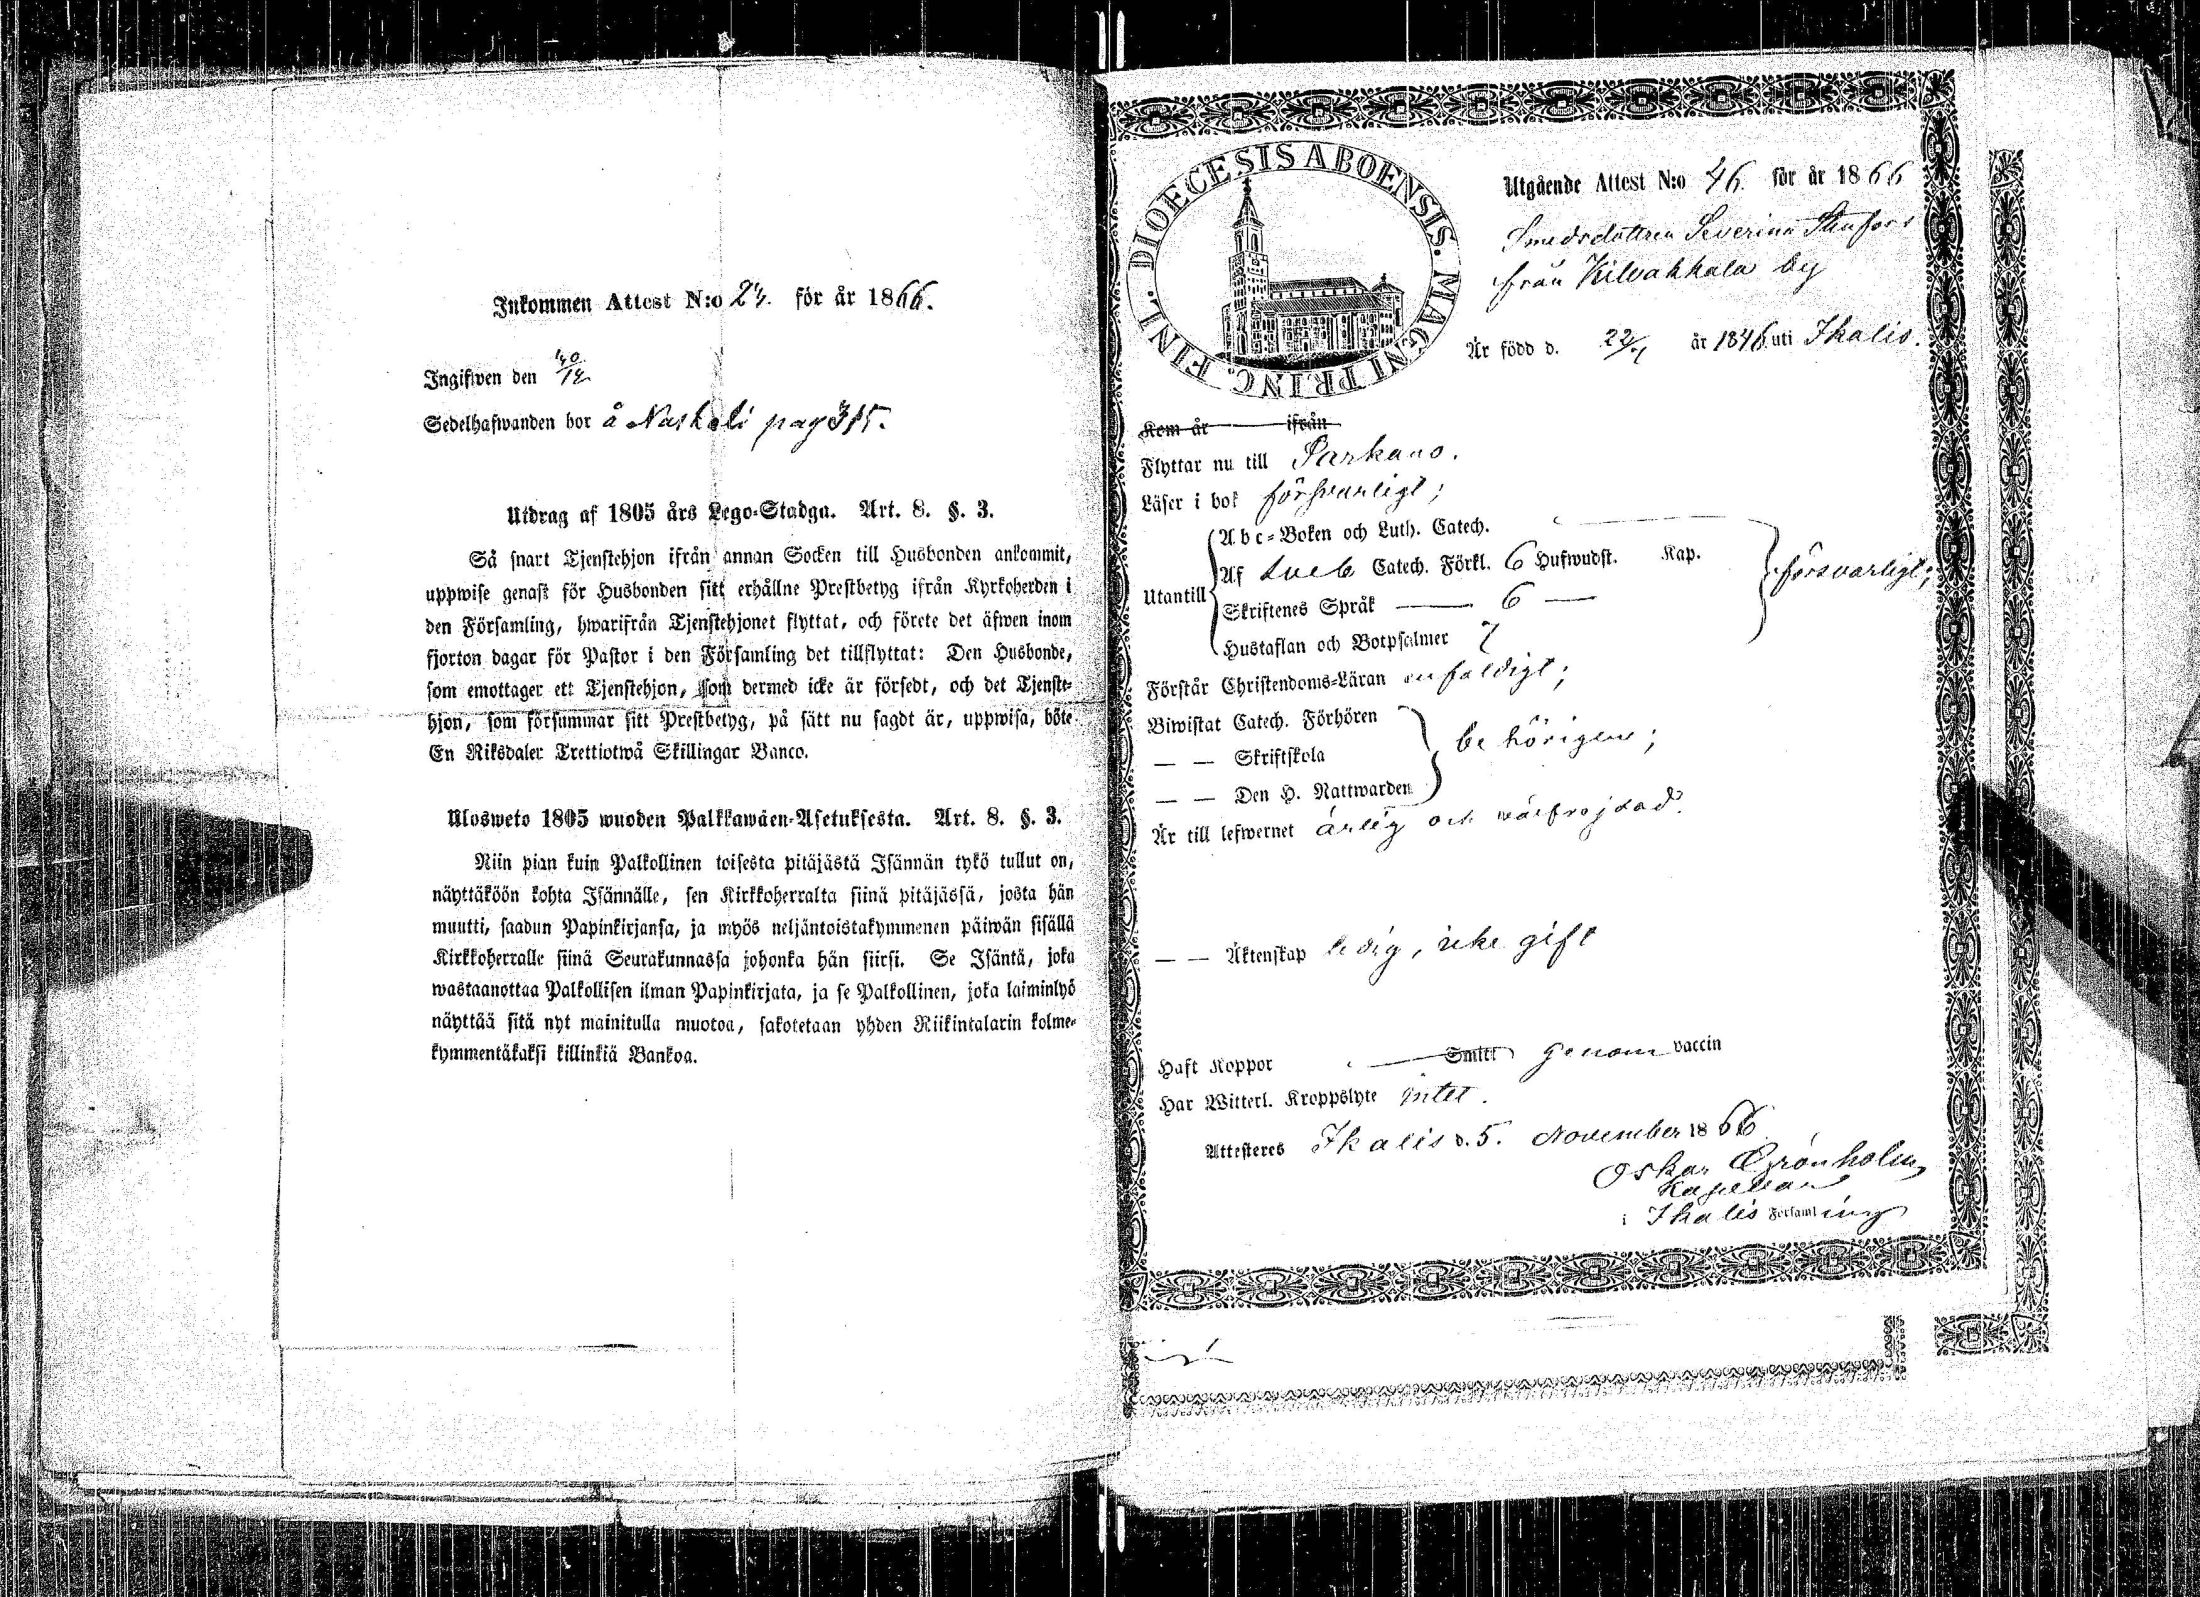 Inkommen Attest N:o för år 1866.
Ingifwen den
Sedelhafwanden bor å Naskali pag 315.
Utdrag af 1805 års Lego-Stadga. Art. 8. §. 3.
Så snart Tjenstehjon ifrån annan Socken till Husbonden ankommit,
uppwise genast för Husbonden sitt erhållne Prestbetyg ifrån Kyrkoherden i
den Församling, hwarifrån Tjenstehjonet flyttat, och förete det äfwen inom
fjorton dagar för Pastor i den Församling det tillflyttat: Den Husbonde,
som emottager ett Tjenstehjon, som dermed icke är försedt, och det Tjenste-
hjon, som försummar sitt Prestbetyg, på sätt nu sagdt är, uppwisa, böte
En Riksdaler Trettiotwå Skillingar Banco.
Ulosweto 1805 wuoden Palkkawäen-Asetuksesta. Art. 8. §. 3.
Niin pian kuin Palkollinen toisesta pitäjästä Isännän tykö tullut on,
näyttäköön kohta Isännälle, sen Kirkkoherralta siinä pitäjässä, josta hän
muutti, saadun Papinkirjansa, ja myös neljäntoistakymmenen päiwän sisällä
Kirkkoherralle siinä Seurakunnassa johonka hän siirsi. Se Isäntä, joka
wastaanottaa Palkollisen ilman Papinkirjata, ja se Palkollinen, joka laiminlyö
näyttää sitä nyt mainitulla muotoa, sakotetaan yhden Riikintalarin kolme-
kymmentäkaksi killinkiä Bankoa.
DIOECESIS ABOENSIS. MAGNI PRINC. FINL.
Utgående Attest N:o 46. för år 1866
Smedsdottren Severina Stenfors
från Kilvakkala by
Är född d. 22/ år 1846 uti Ikalis.
Kom år ifrån
Flyttar nu till Parkano.
Läser i bok försvarligt;
Utantill
Abc-Boken och Luth. Catech.
Af Catech. Förkl. 6 Hufwudst. Kap.
Skriftenes Språk — 6 —
Hustaflan och Botpsalmer
försvarligt;
Förstår Christendoms-Läran enfaldigt;
Biwistat Catech. Förhören
— — Skriftskola
— — Den H. Nattwarden
behörigen;
Är till lefwernet ärlig och wälfrejdad.
— — Äktenskap ledig, icke gift
Haft Koppor — Smitt genom vaccin
Har Witterl. Kroppslyte intet.
Attesteres Ikalis d. 5. November 1866
Oskar Grönholm,
Kapellan
i Ikalis Församling